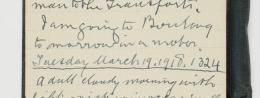 man the Transports.
I am going to Boulong
to morrow in a motor.
Tuesday March 19. 1918. 1324
a dull cloudy morning with